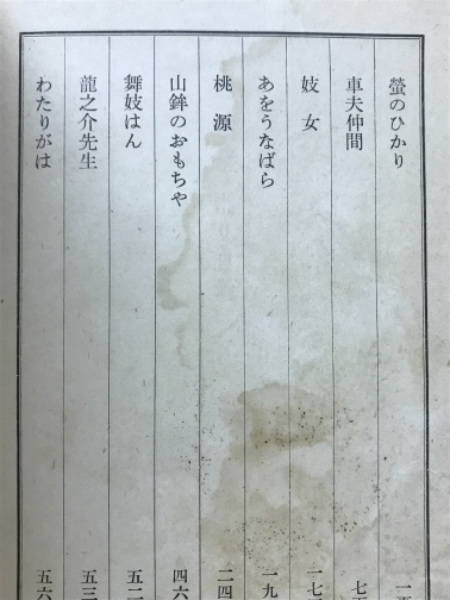 螢のひかり
車夫仲間
妓女
あをうなばら
桃源
山鉾のおもちや
舞妓はん
龍之介先生
わたりがは
一七
一九
二四
四六
五二
五三
五六